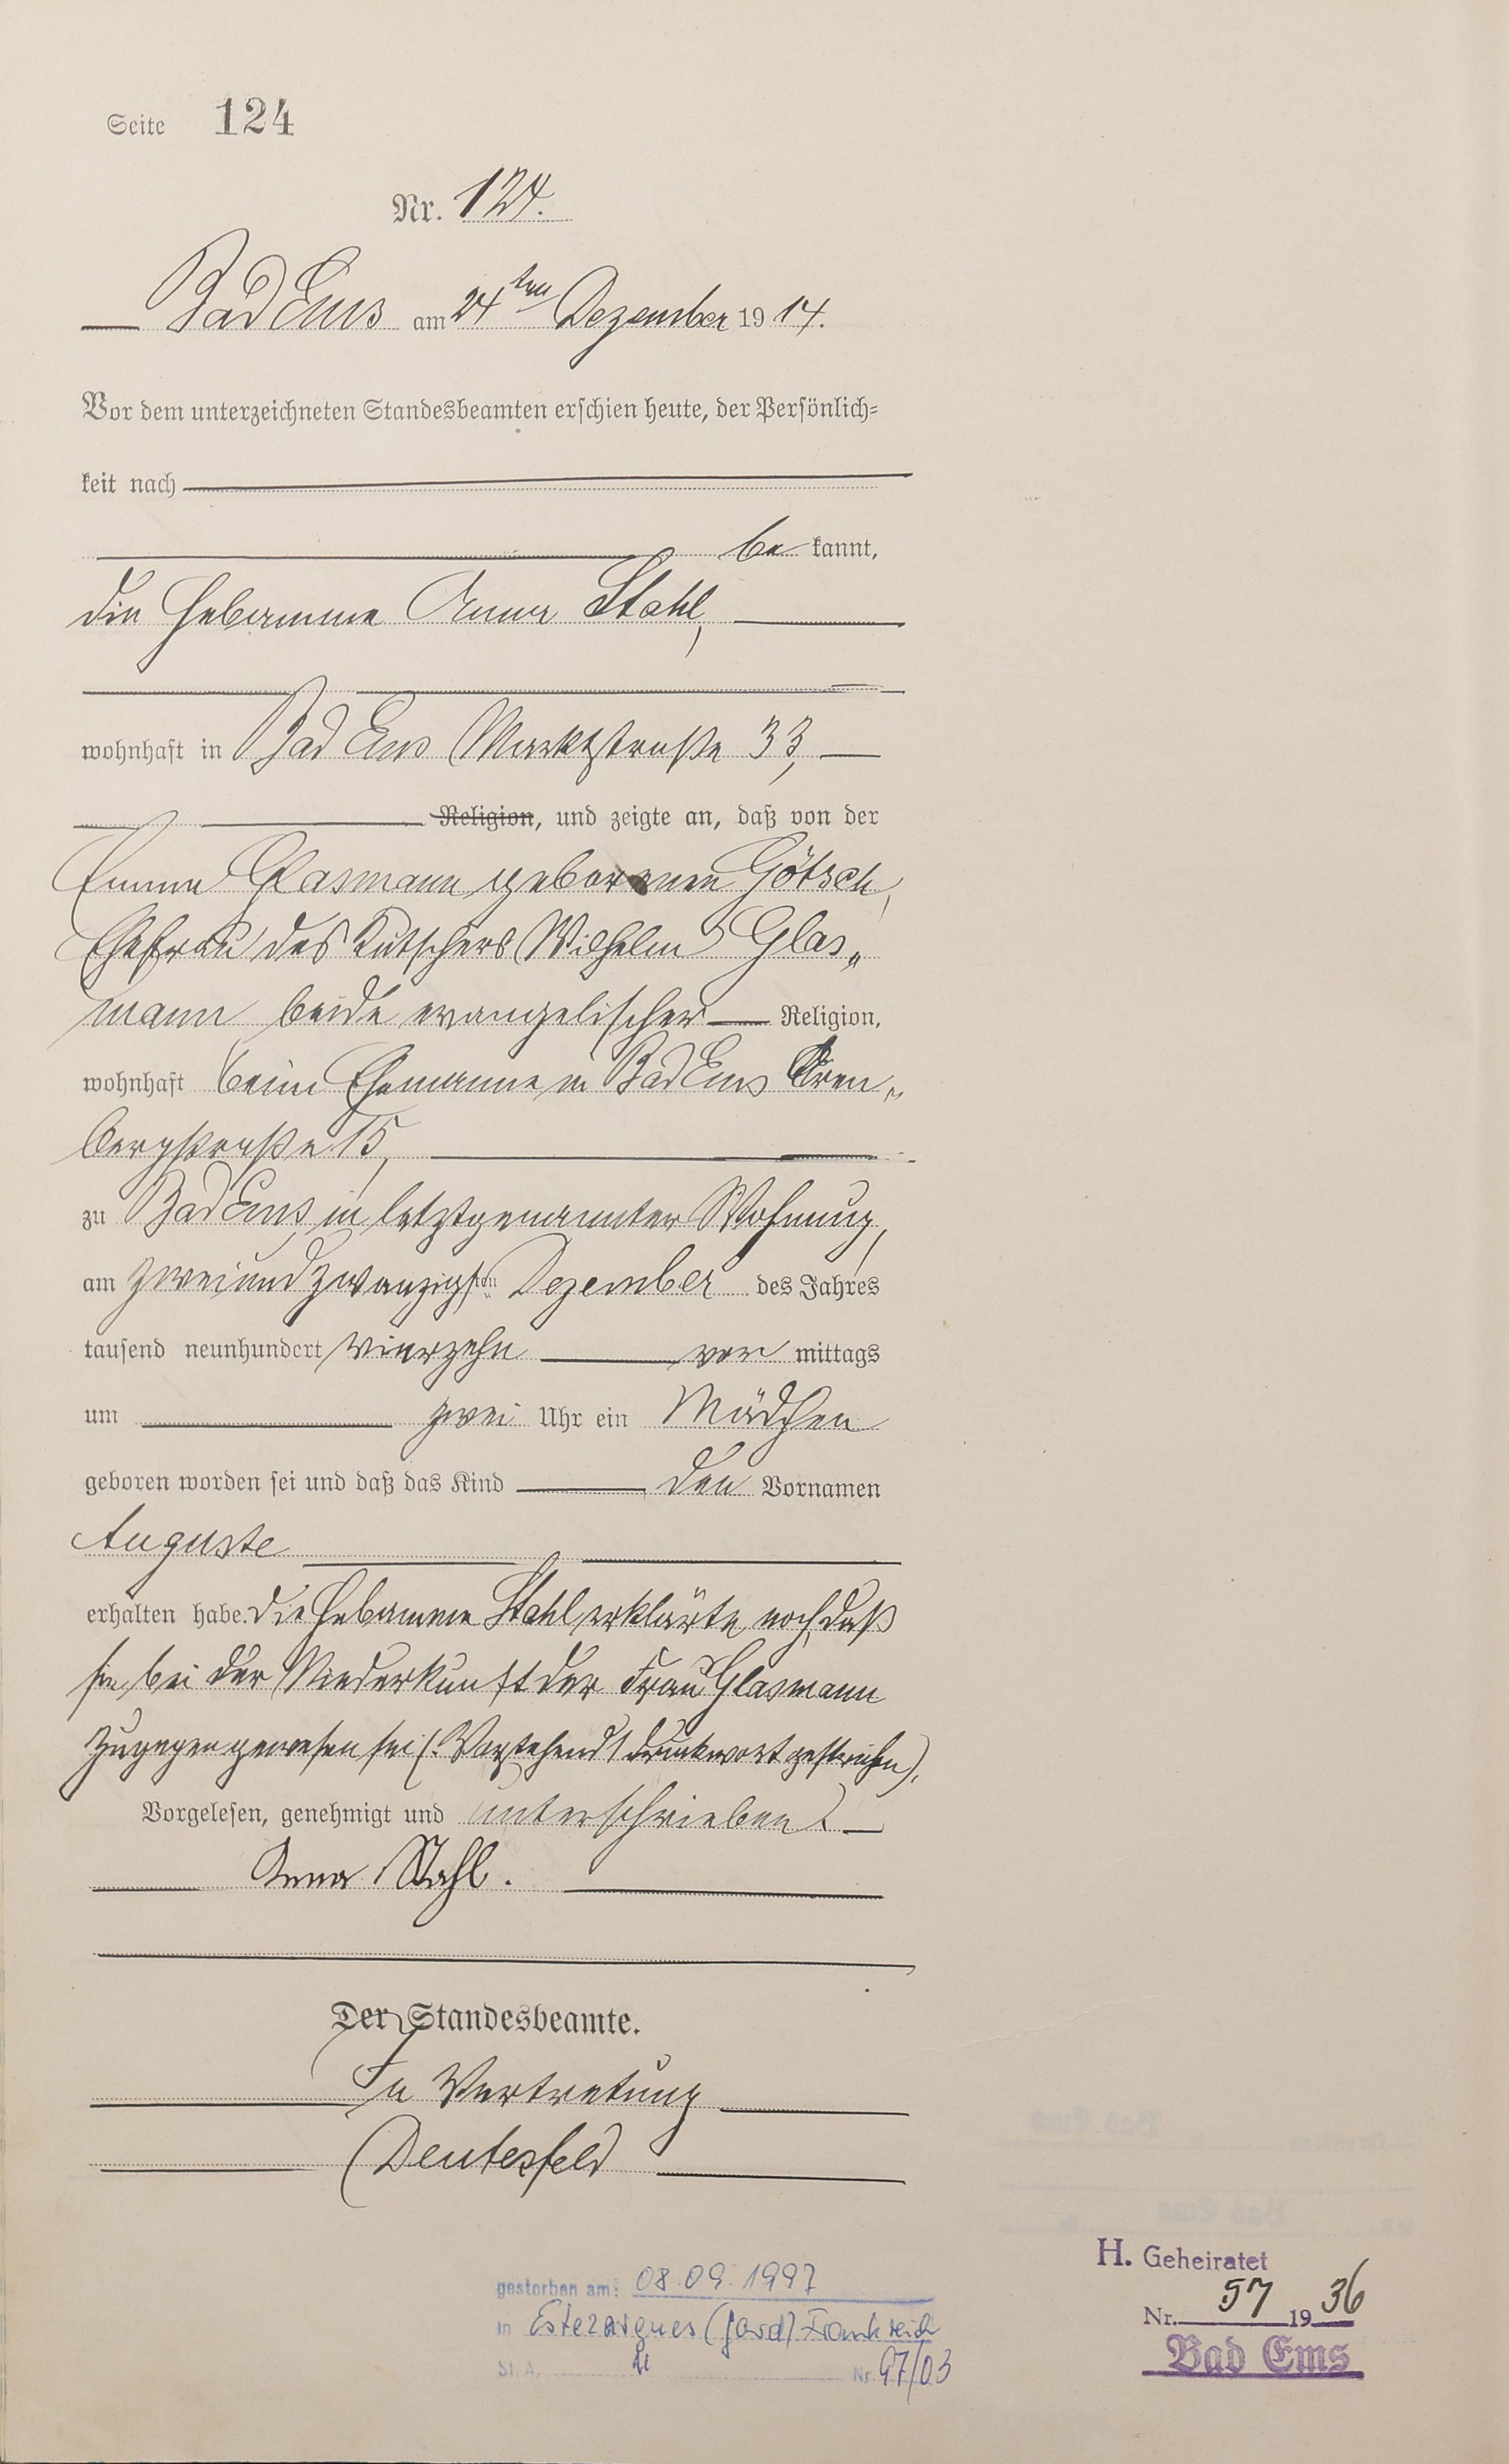 Seite 124
Nr. 124.
Bad Ems am 24ten Dezember 1914.
Vor dem unterzeichneten Standesbeamten erschien heute, der Persönlich-
keit nach
be kannt,
die Hebamme Anna Stahl,
wohnhaft in Bad Ems Marktstraße 33,
Religion, und zeigte an, daß von der
Emma Glasmann geborenen Götsch,
Ehefrau des Kutschers Wilhelm Glas„
mann beide evangelischer Religion,
wohnhaft beim Ehemanne in Bad Ems Aren„
bergstraße 15,
zu Bad Ems, in letztgenannter Wohnung,
am zweiundzwanzigsten Dezember des Jahres
tausend neunhundert vierzehn vor mittags
um zwei Uhr ein Mädchen
geboren worden sei und daß das Kind den Vornamen
Auguste
erhalten habe. Die Hebamme Stahl erklärte noch, daß
sie bei der Niederkunft der Frau Glasmann
zugegen gewesen sei (: Vorstehend 1 Druckwort gestrichen).
Vorgelesen, genehmigt und unterschrieben.
Anna Stahl.
Der Standesbeamte.
In Vertretung
Deutesfeld
gestorben am: 08.09.1997
in Estezargues (Gard) Frankreich
St. A. Nr. 97/03
H. Geheiratet
Nr. 57 1936
Bad Ems